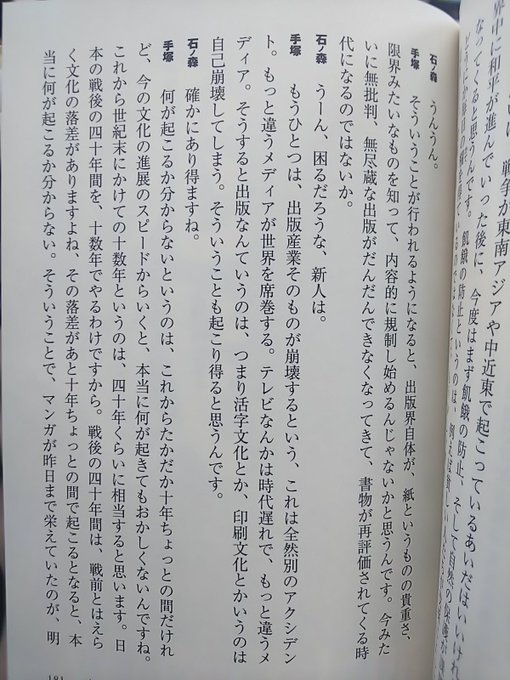 戦争が東南アジアや中近東で起こっているあいだはいいけれ
界中に和平が進んでいった後に、今度はまず飢餓の防止、そして自然の保護
なってくると思うんです。飢餓の防止というのは、例えば
石ノ森 うんうん。
手塚 そういうことが行われるようになると、出版界自体が、紙というものの貴重さ、
限界みたいなものを知って、内容的に規制し始めるんじゃないかと思うんです。今みた
いに無批判、無尽蔵な出版がだんだんできなくなってきて、書物が再評価されてくる時
代になるのではないか。
石ノ森 うーん、困るだろうな、新人は。
手塚 もうひとつは、出版産業そのものが崩壊するという、これは全然別のアクシデン
ト。もっと違うメディアが世界を席巻する。テレビなんかは時代遅れで、もっと違うメ
ディア。そうすると出版なんていうのは、つまり活字文化とか、印刷文化とかいうのは
自己崩壊してしまう。そういうことも起こり得ると思うんです。
石ノ森 確かにあり得ますね。
手塚 何が起こるか分からないというのは、これからたかだか十年ちょっとの間だけれ
ど、今の文化の進展のスピードからいくと、本当に何が起きてもおかしくないんですね。
これから世紀末にかけての十数年というのは、四十年くらいに相当すると思います。日
本の戦後の四十年間を、十数年でやるわけですから。戦後の四十年間は、戦前とはえら
く文化の落差がありますよね、その落差があと十年ちょっとの間で起こるとなると、本
当に何が起こるか分からない。そういうことで、マンガが昨日まで栄えていたのが、明
181